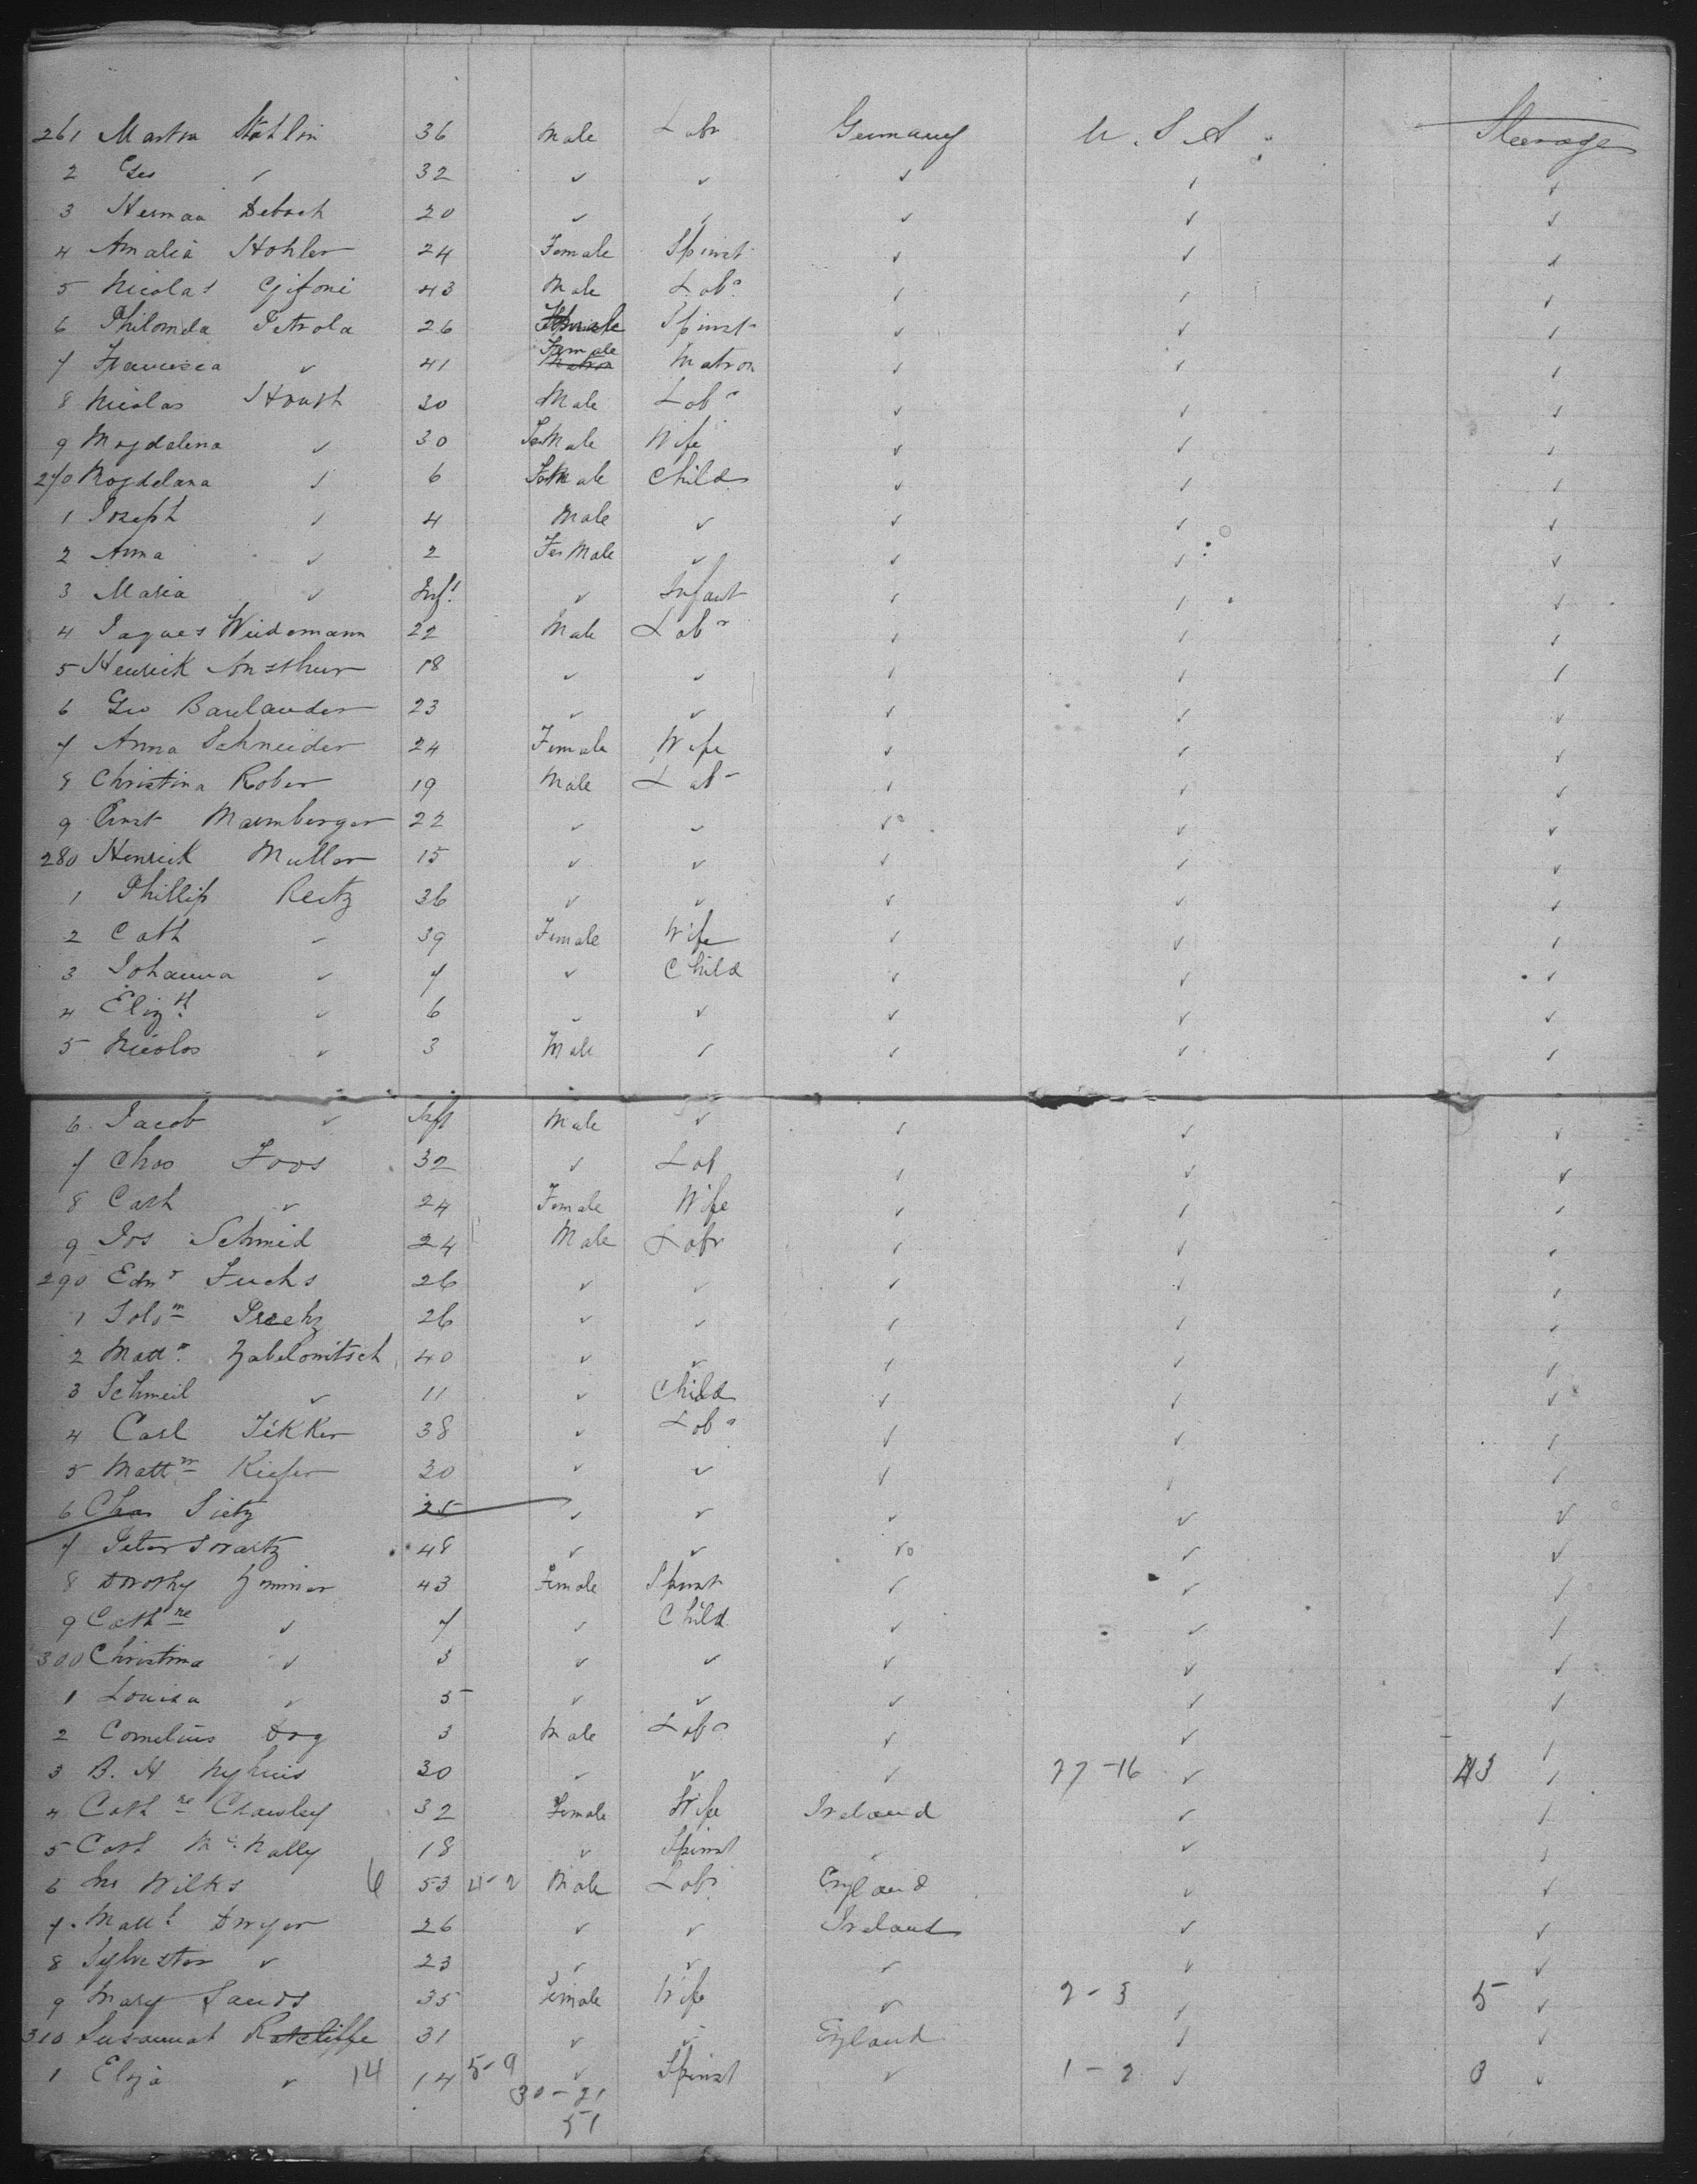 261 Martin Stahlin 36 Male Labr Germany U.S.A. Steerage
2 Geo " 32 " " " " "
3 Herman Debach 20 " " " " "
4 Amalia Hohler 24 Female Spinst " " "
5 Nicolas Gifoni 43 Male Labr " " "
6 Philomila Petrola 26 Spinst " " "
7 Francisca " 41 Female Matron Matron " " "
8 Nicolas 30 Male Labr " " "
9 Magdalena " 30 FeMale Wife " " "
270 Magdelana " 6 FeMale Child " " "
1 Joseph " 4 Male " " " "
2 Anna " 2 FeMale " " " "
3 Maria " Inft " Infant " " "
4 Jaques Weidemann 22 Male Labr " " "
5 Henrick 18 " " " " "
6 Geo Barelander 23 " " " " "
7 Anna Schneider 24 Female Wife " " "
8 Christina Rober 19 Male Labr " " "
9 Ernst Marmberger 22 " " " " "
280 Henrick Muller 15 " " " " "
1 Phillip Reitz 36 " " " " "
2 Cath " 39 Female Wife " " "
3 Johanna " 7 " Child " " "
4 Elizth " 6 " " " " "
5 Nicolas " 3 Male " " " "
6 Jacob " Inft Male " " " "
7 Chas Foos 32 " Lab " " "
8 Cath " 24 Female Wife " " "
9 Jos Schmid 24 Male Labr " " "
290 Edwd Fuchs 26 " " " " "
1 Solm 26 " " " " "
2 Mattw Zabelowitsch 40 " " " " "
3 Schmeil " 11 " Child " " "
4 Carl Tekker 38 " Labr " " "
5 Mattw Kiefer 30 " " " " "
6 Chas Sietz 25 " " " " "
7 Peter Swartz 48 " " " " "
8 Dorothy Zimmer 43 Female Spinst " " "
9 Cathne " 7 " Child " " "
300 Christina " 3 " " " " "
1 Louisa " 5 " " " " "
2 Cornelius Dog 3 Male Labr " " "
3 B. H Nyhuis 30 " " " 27-16 " 43 "
4 Cathne 32 Female Wife Ireland " "
5 Cath McNally 18 " Spinst " " "
6 Jno Wilks 6 53 4-2 Male Labr England " "
7 Mattw Dwyer 26 " " Ireland " "
8 Sylvester " 23 " " " " "
9 Mary Sands 35 Female Wife " 2-3 " 5 "
310 Susannah Ratcliffe 31 " " England " "
1 Eliza " 14 14 5-9 " Spinst " 1-2 " 3 "
30-21
51